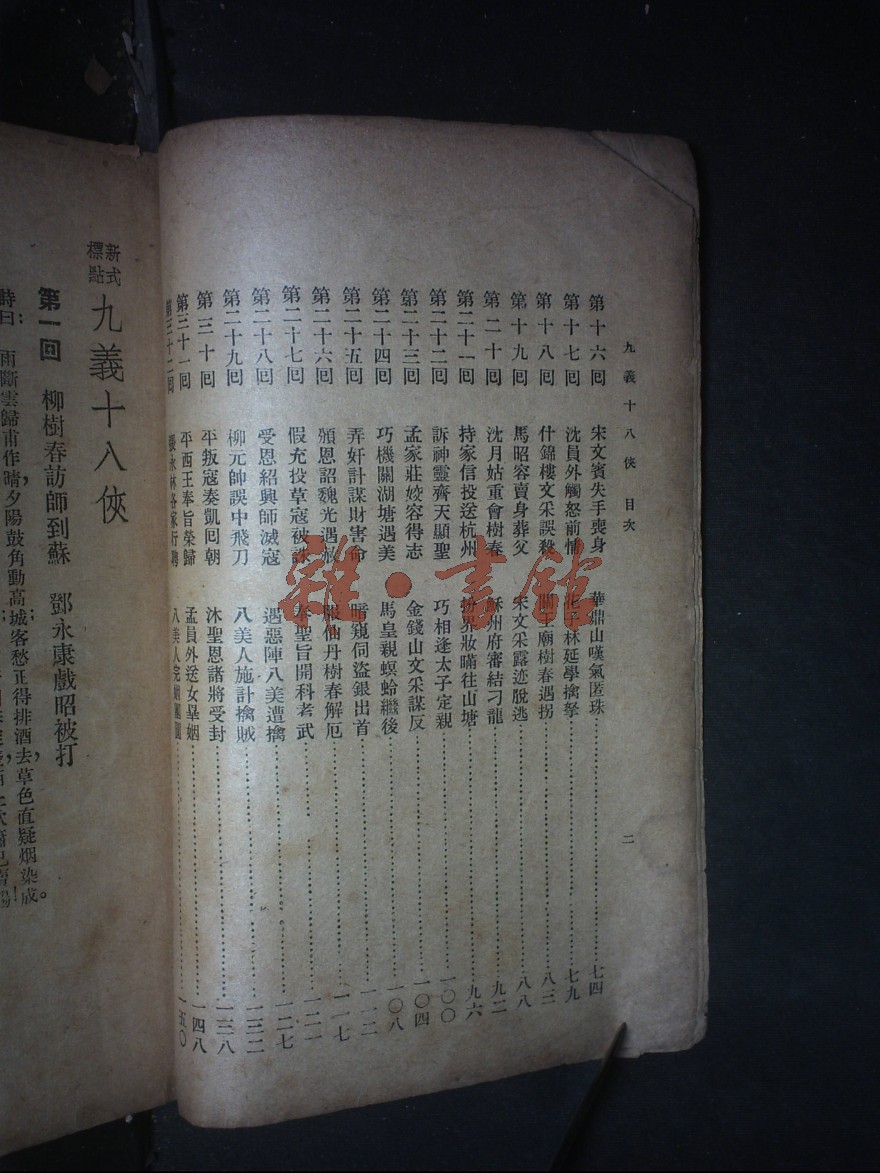 九義十八俠 目次 二
第十六囘 宋文賓失手喪身 華鼎山嘆氣匿珠 七四
第十七囘 沈員外觸怒前情 化子林延學擒拏 七九
第十八囘 什錦樓文采誤殺 王廟樹春遇拐 八三
第十九囘 馬昭容賣身葬父 宋文采露迹脫逃 八八
第二十囘 沈月姑重會樹春 蘇州府審結刁龍 九二
第二十一囘 持家信投送杭州 扮男妝瞞往山塘 九六
第二十二囘 訴神靈齊天顯聖 巧相逢太子定親 一〇〇
第二十三囘 孟家莊姣容得志 金錢山文采謀反 一〇四
第二十四囘 巧機關湖塘遇美 馬皇親螟蛉繼後 一〇八
第二十五囘 弄奸計謀財害命 暗窺伺盜銀出首 一一二
第二十六囘 頒恩詔魏光遇赦 服仙丹樹春解厄 一一七
第二十七囘 假充投草寇被誅 奉聖旨開科考武 一二一
第二十八囘 受恩紹興師滅寇 遇惡陣八美遭擒 一二七
第二十九囘 柳元帥誤中飛刀 八美人施計擒賊 一三二
第三十囘 平叛寇奏凱囘朝 沐聖恩諸將受封 一三八
第三十一囘 平西王奉旨榮歸 孟員外送女畢姻 一四八
第三十二囘 張永林各家行聘 八美人完姻團圓 一五〇
新式標點 九義十八俠
第一囘 柳樹春訪師到蘇 鄧永康戲昭被打
詩曰：雨斷雲歸甫作晴，夕陽鼓角動高城；客愁正得排酒去，草色直疑烟染成。